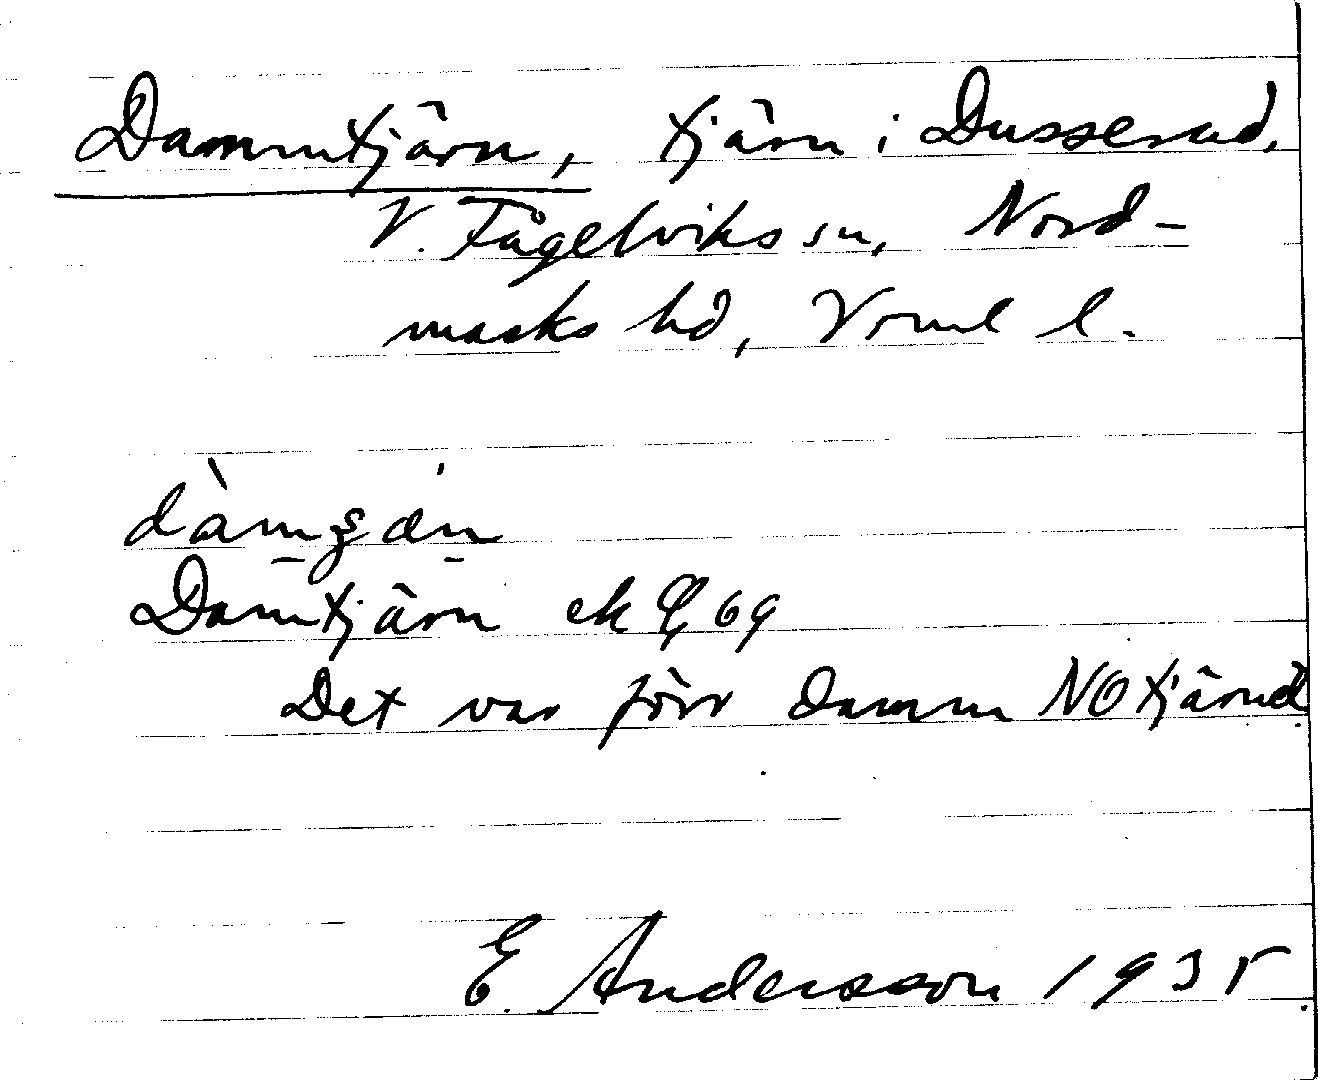 Dammtjärn, tjärn i Dusserud,
V. Fågelviks sn, Nord-
marks hd, Vrml l.
Damtjärn ek 69
Det var förr damm NO tjärnet
E. Andersson 1935